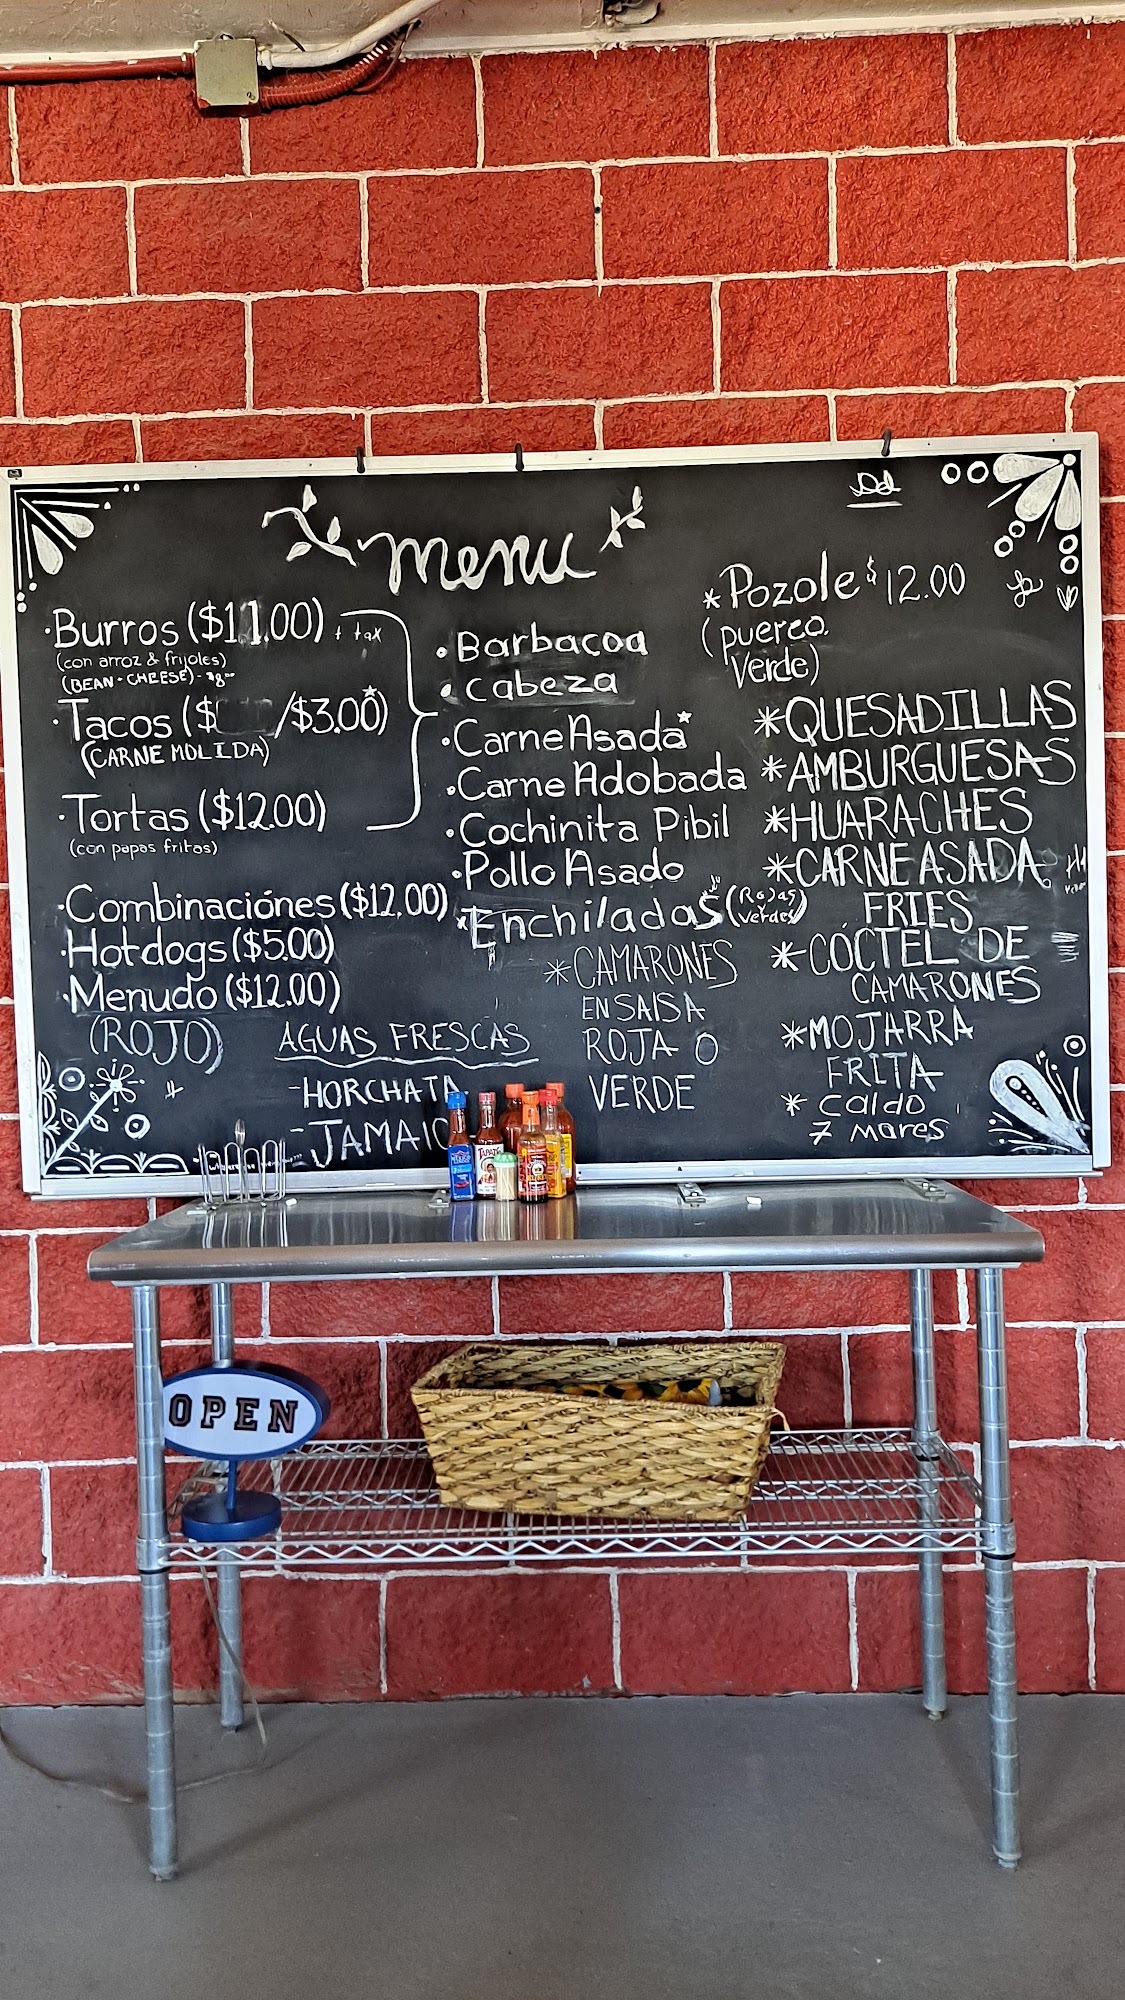 menu
·Burros ($11.00) + tax
(con arroz & frijoles)
(BEAN - CHEESE) - $8⁰⁰
·Tacos ($ /$3.00*)
(CARNE MOLIDA)
·Tortas ($12.00)
(con papas fritas)
·Combinaciónes ($12.00)
·Hotdogs ($5.00)
·Menudo ($12.00)
(ROJO)
AGUAS FRESCAS
-HORCHATA
-JAMAIC
·Barbacoa
·cabeza
·Carne Asada*
·Carne Adobada
·Cochinita Pibil
·Pollo Asado
*Enchiladas (Rojas
verdes)
*CAMARONES
EN SALSA
ROJA O
VERDE
*Pozole $12.00
(puerco.
Verde)
*QUESADILLAS
*AMBURGUESAS
*HUARACHES
*CARNE ASADA
FRIES
*CÓCTEL DE
CAMARONES
*MOJARRA
FRITA
* caldo
7 mares
TAPATIO
OPEN